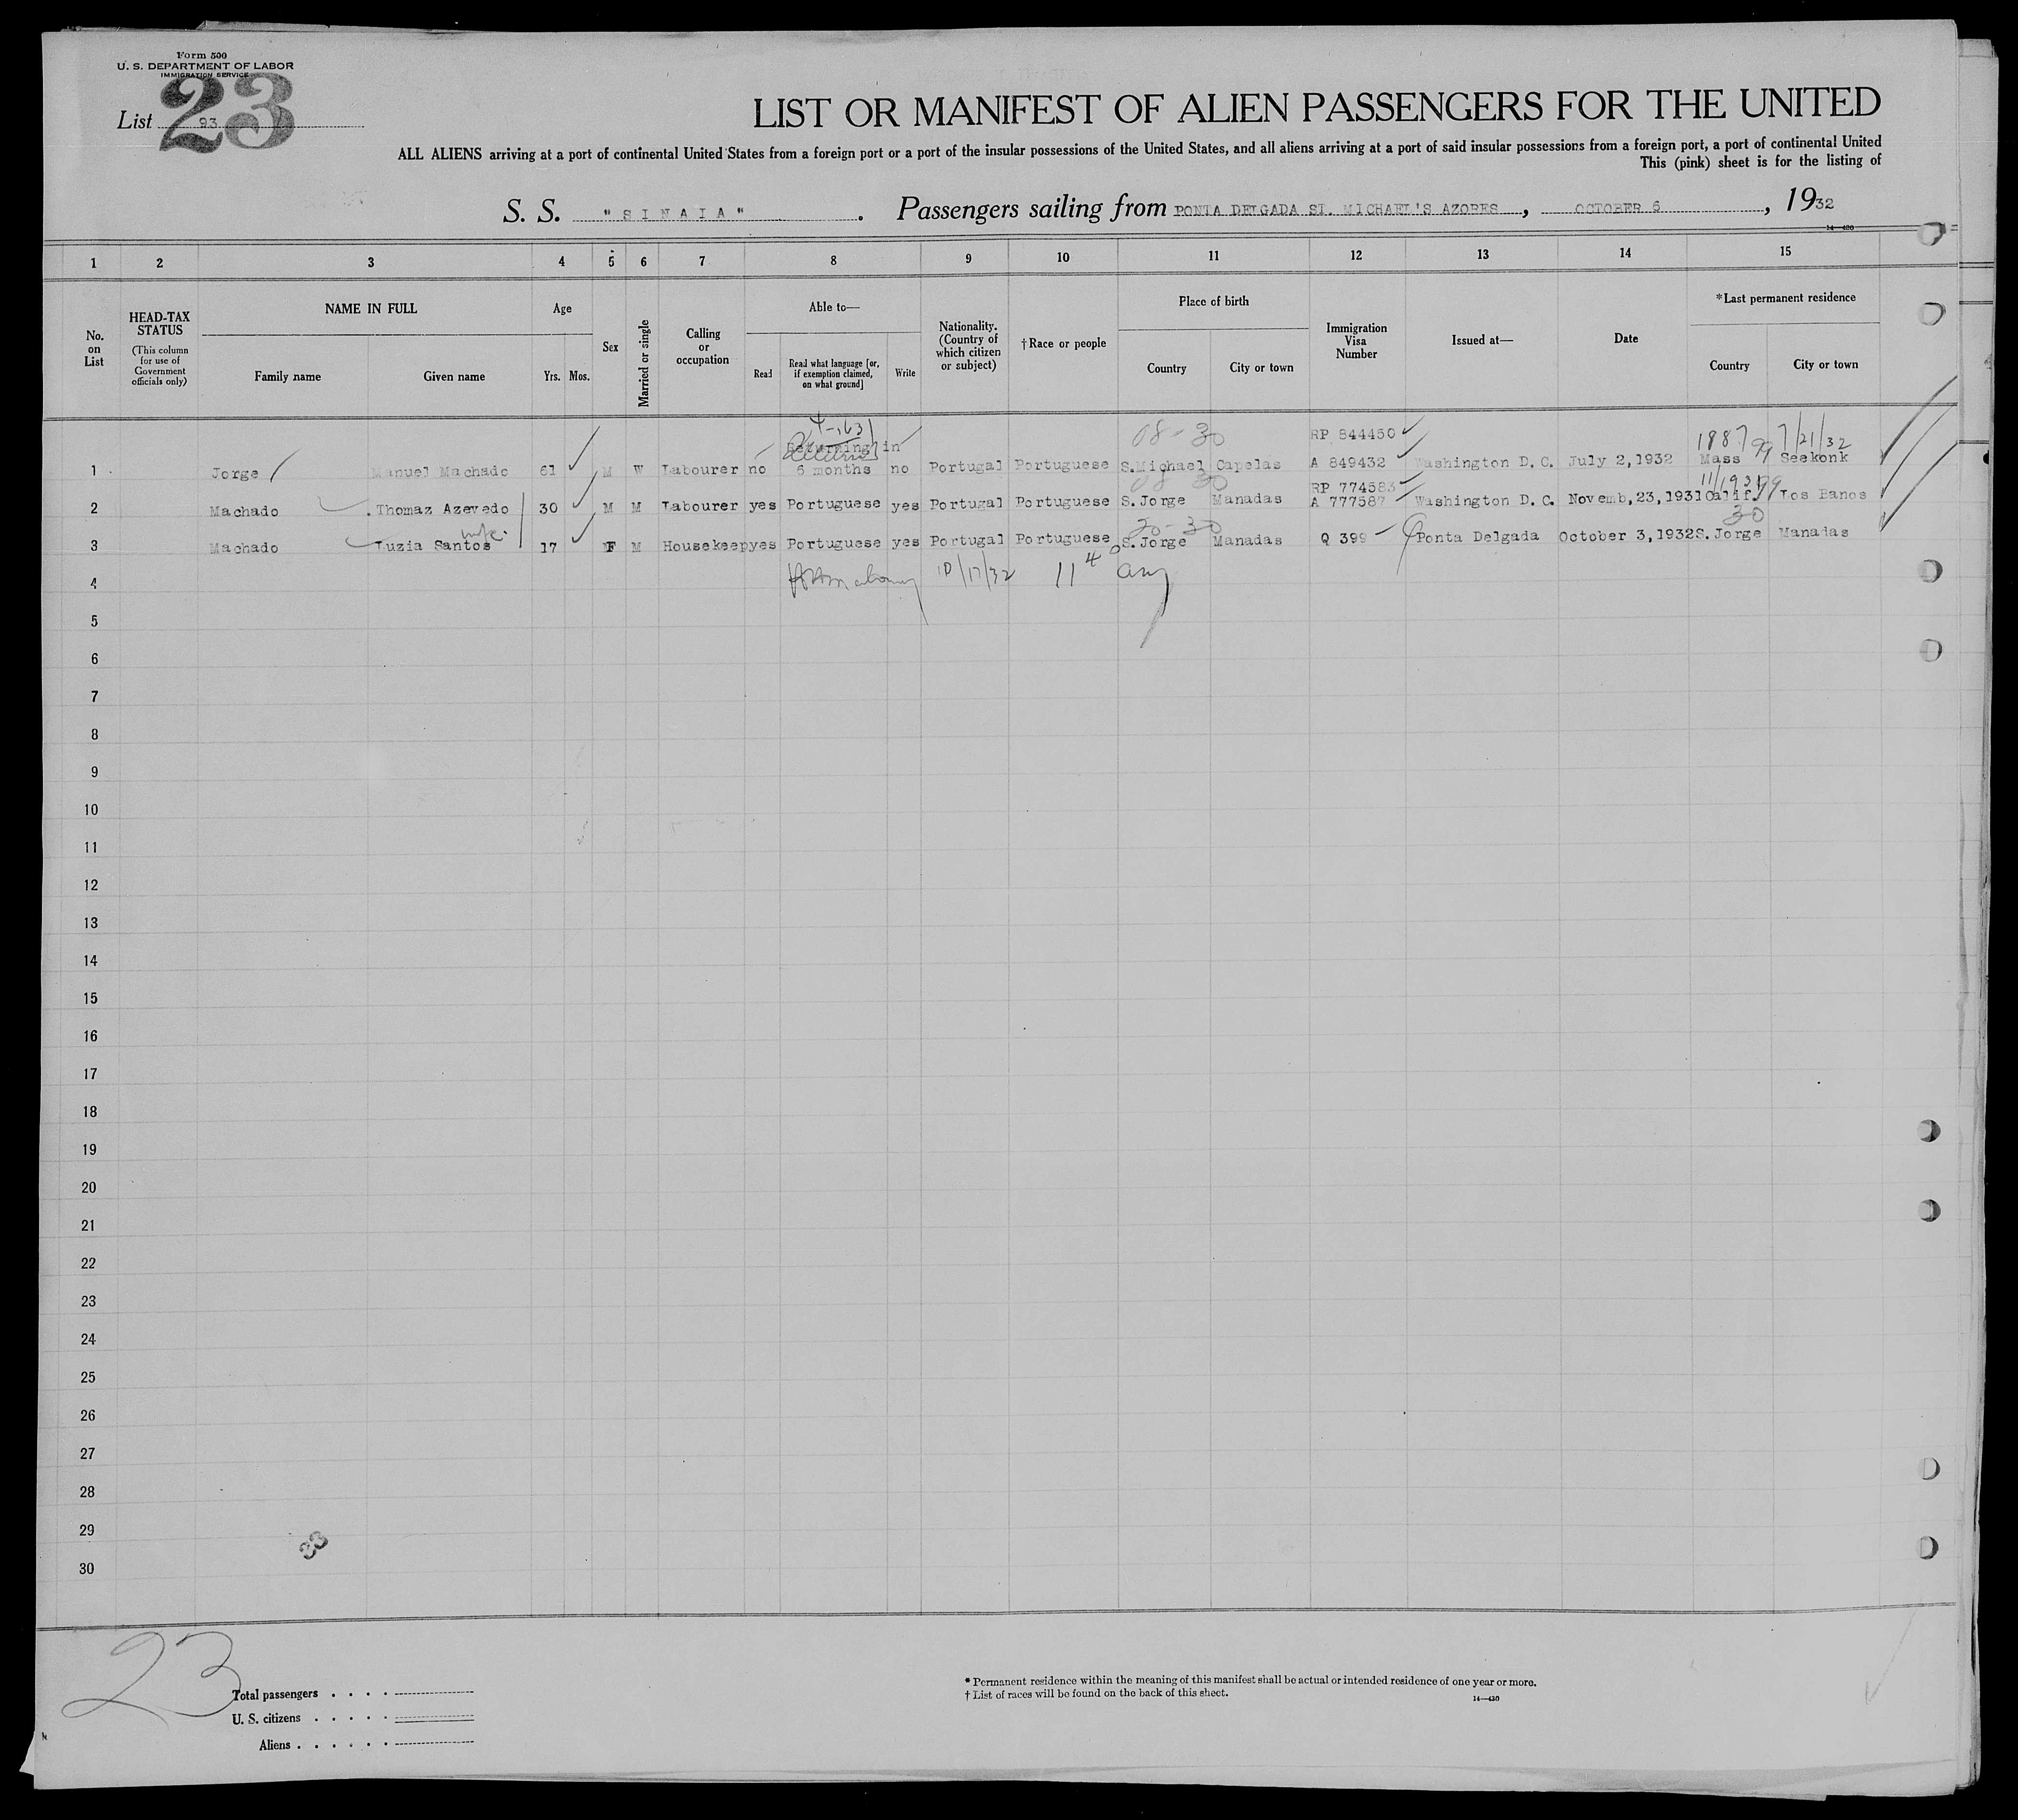 Form 500
U. S. DEPARTMENT OF LABOR
IMMIGRATION SERVICE
23
List 93
LIST OR MANIFEST OF ALIEN PASSENGERS FOR THE UNITED
ALL ALIENS arriving at a port of continental United States from a foreign port or a port of the insular possessions of the United States, and all aliens arriving at a port of said insular possessions from a foreign port, a port of continental United
This (pink) sheet is for the listing of
S. S. "SINAIA". Passengers sailing from PONTA DELGADA ST. MICHAEL'S AZORES, OCTOBER 6, 1932
14—430
1 2 3 4 5 6 7 8 9 10 11 12 13 14 15
No. on List
HEAD-TAX STATUS
(This column for use of Government officials only)
NAME IN FULL
Family name Given name
Age
Yrs. Mos.
Sex
Married or single
Calling or occupation
Able to—
Read
Read what language [or, if exemption claimed, on what ground]
Write
Nationality. (Country of which citizen or subject)
†Race or people
Place of birth
Country City or town
Immigration Visa Number
Issued at—
Date
*Last permanent residence
Country City or town
08-30 RP 844450 1887 99 7/21/32
Returning in
1 Jorge Manuel Machado 61 M W Labourer no 6 months no Portugal Portuguese S.Michael Capelas A 849432 Washington D.C. July 2,1932 Mass Seekonk
08 30 RP 774583 11/1931 99
2 Machado Thomaz Azevedo 30 M M Labourer yes Portuguese yes Portugal Portuguese S.Jorge Manadas A 777587 Washington D.C. Novemb,23,1931 Calif. Los Banos
wife 20-30 30
3 Machado Luzia Santos 17 F M Housekeep yes Portuguese yes Portugal Portuguese S.Jorge Manadas Q 399 Ponta Delgada October 3,1932 S.Jorge Manadas
4 10/17/32 11 40
5
6
7
8
9
10
11
12
13
14
15
16
17
18
19
20
21
22
23
24
25
26
27
28
29
23
30
23
Total passengers
U. S. citizens
Aliens
* Permanent residence within the meaning of this manifest shall be actual or intended residence of one year or more.
† List of races will be found on the back of this sheet.
14—430